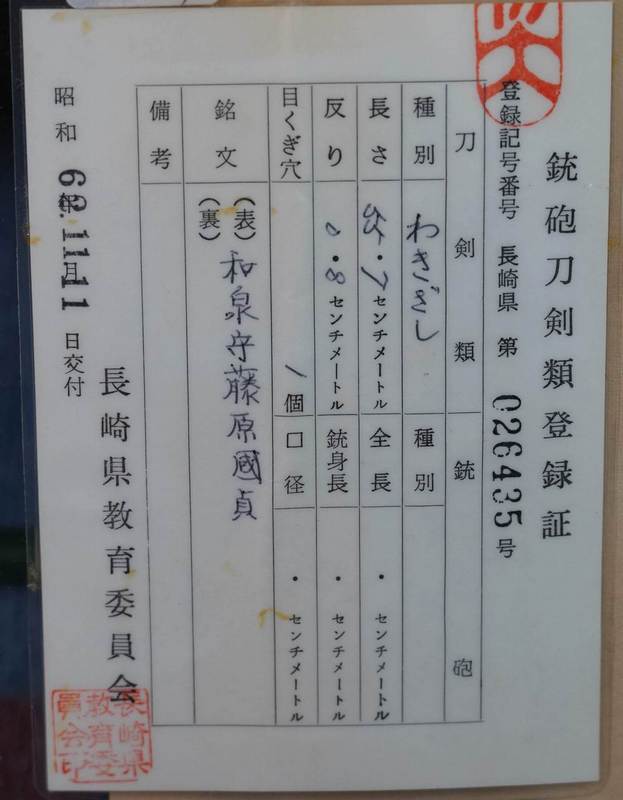 銃砲刀剣類登録証
登録記号番号 長崎県 第 026435 号
刀剣類
銃砲
種別 わきざし
種別
長さ ・7 センチメートル
全長 ・ センチメートル
反り 0・8 センチメートル
銃身長 ・ センチメートル
目くぎ穴 1 個
口径 ・ センチメートル
銘文
(表) 和泉守藤原國貞
(裏)
備考
昭和 62年11月11日交付
長崎県教育委員会
長崎県
教育委
員会印